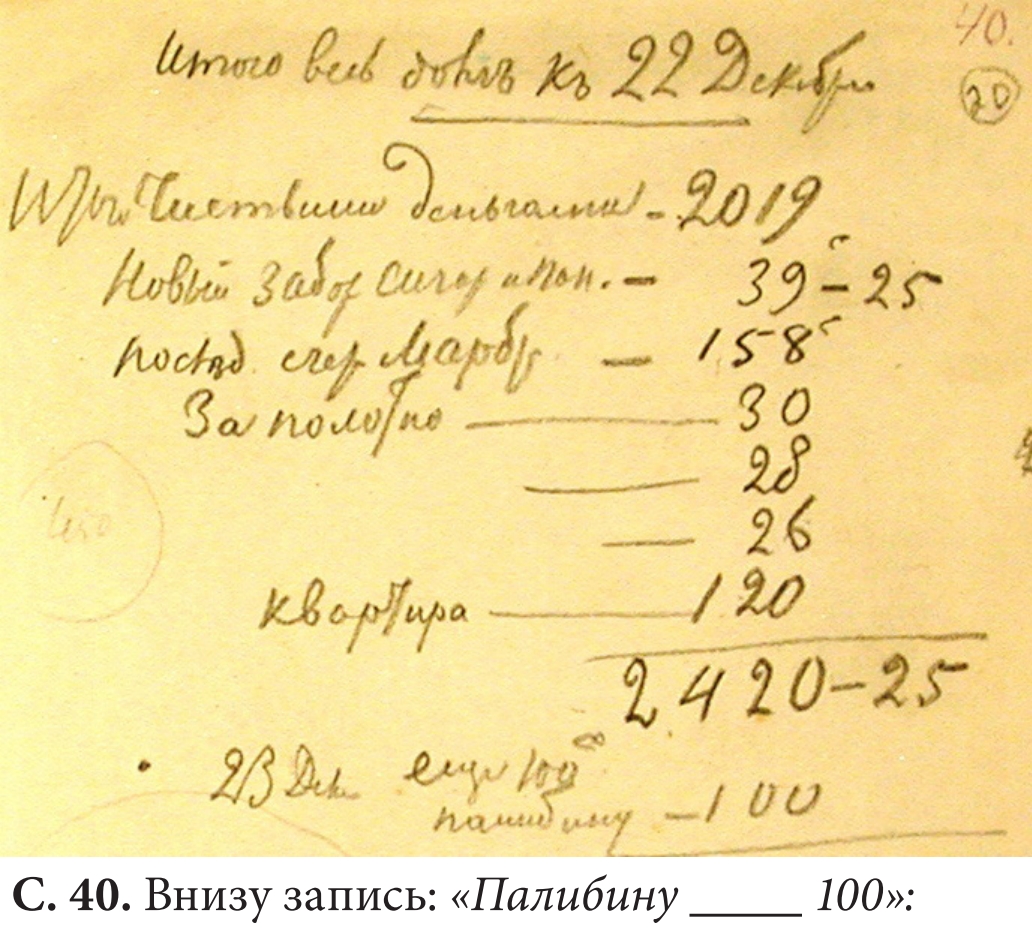 40.
20
Итого весь долгъ къ 22 Декабря
Чистыми деньгами - 2019
Новый забор сигар и пап. - 39 - 25
— 158
За полотно — 30
— 28
— 26
квартира — 120
2420-25
23 Дек. еще 100
палибину - 100
С. 40. Внизу запись: «Палибину _____ 100»: